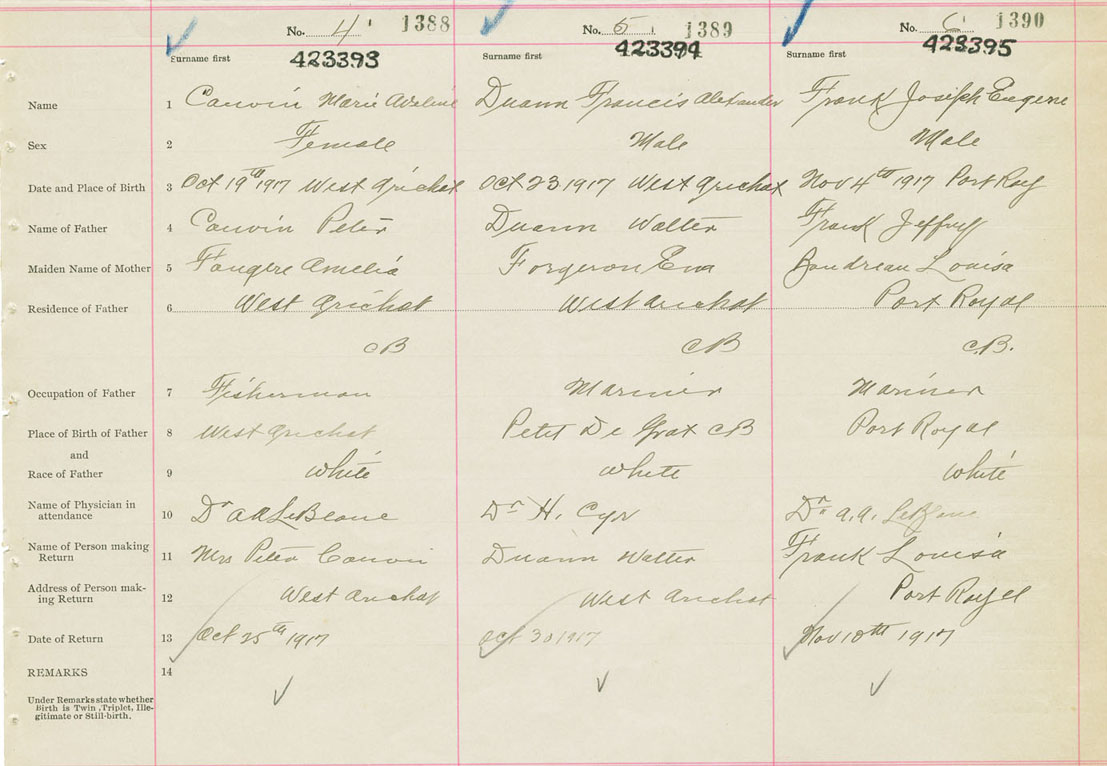 No. 4 1388 No. 5 1389 No. 6 1390
Surname first 423393 Surname first 423394 Surname first 423395
Name 1 Cauvin Marie Aveline Duann Francis Alexander Frank Joseph Eugene
Sex 2 Female Male Male
Date and Place of Birth 3 Oct 19th 1917 West Arichat Oct 23 1917 West Arichat Nov 4th 1917 Port Roy
Name of Father 4 Cauvin Peter Duann Walter Frank Jeffrey
Maiden Name of Mother 5 Fougere Amelia Forgeron Eva Boudreau Louisa
Residence of Father 6 West Arichat West Arichat Port Royal
CB CB C.B.
Occupation of Father 7 Fisherman Mariner Mariner
Place of Birth of Father 8 West Arichat Petit De Grat CB Port Royal
and
Race of Father 9 White White White
Name of Physician in
attendance 10 Dr A A LeBlanc Dr H. Cyr Dr. A.A. LeBlanc
Name of Person making
Return 11 Mrs Peter Cauvin Duann Walter Frank Louisa
Address of Person mak-
ing Return 12 West Arichat West Arichat Port Royal
Date of Return 13 Oct 25th 1917 Oct 30 1917 Nov 10th 1917
REMARKS 14
Under Remarks state whether
Birth is Twin, Triplet, Ille-
gitimate or Still-birth.